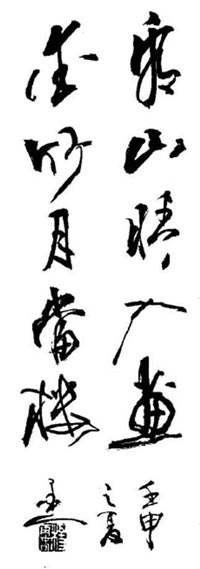 山晴入畫
竹月當樓
壬申
之夏